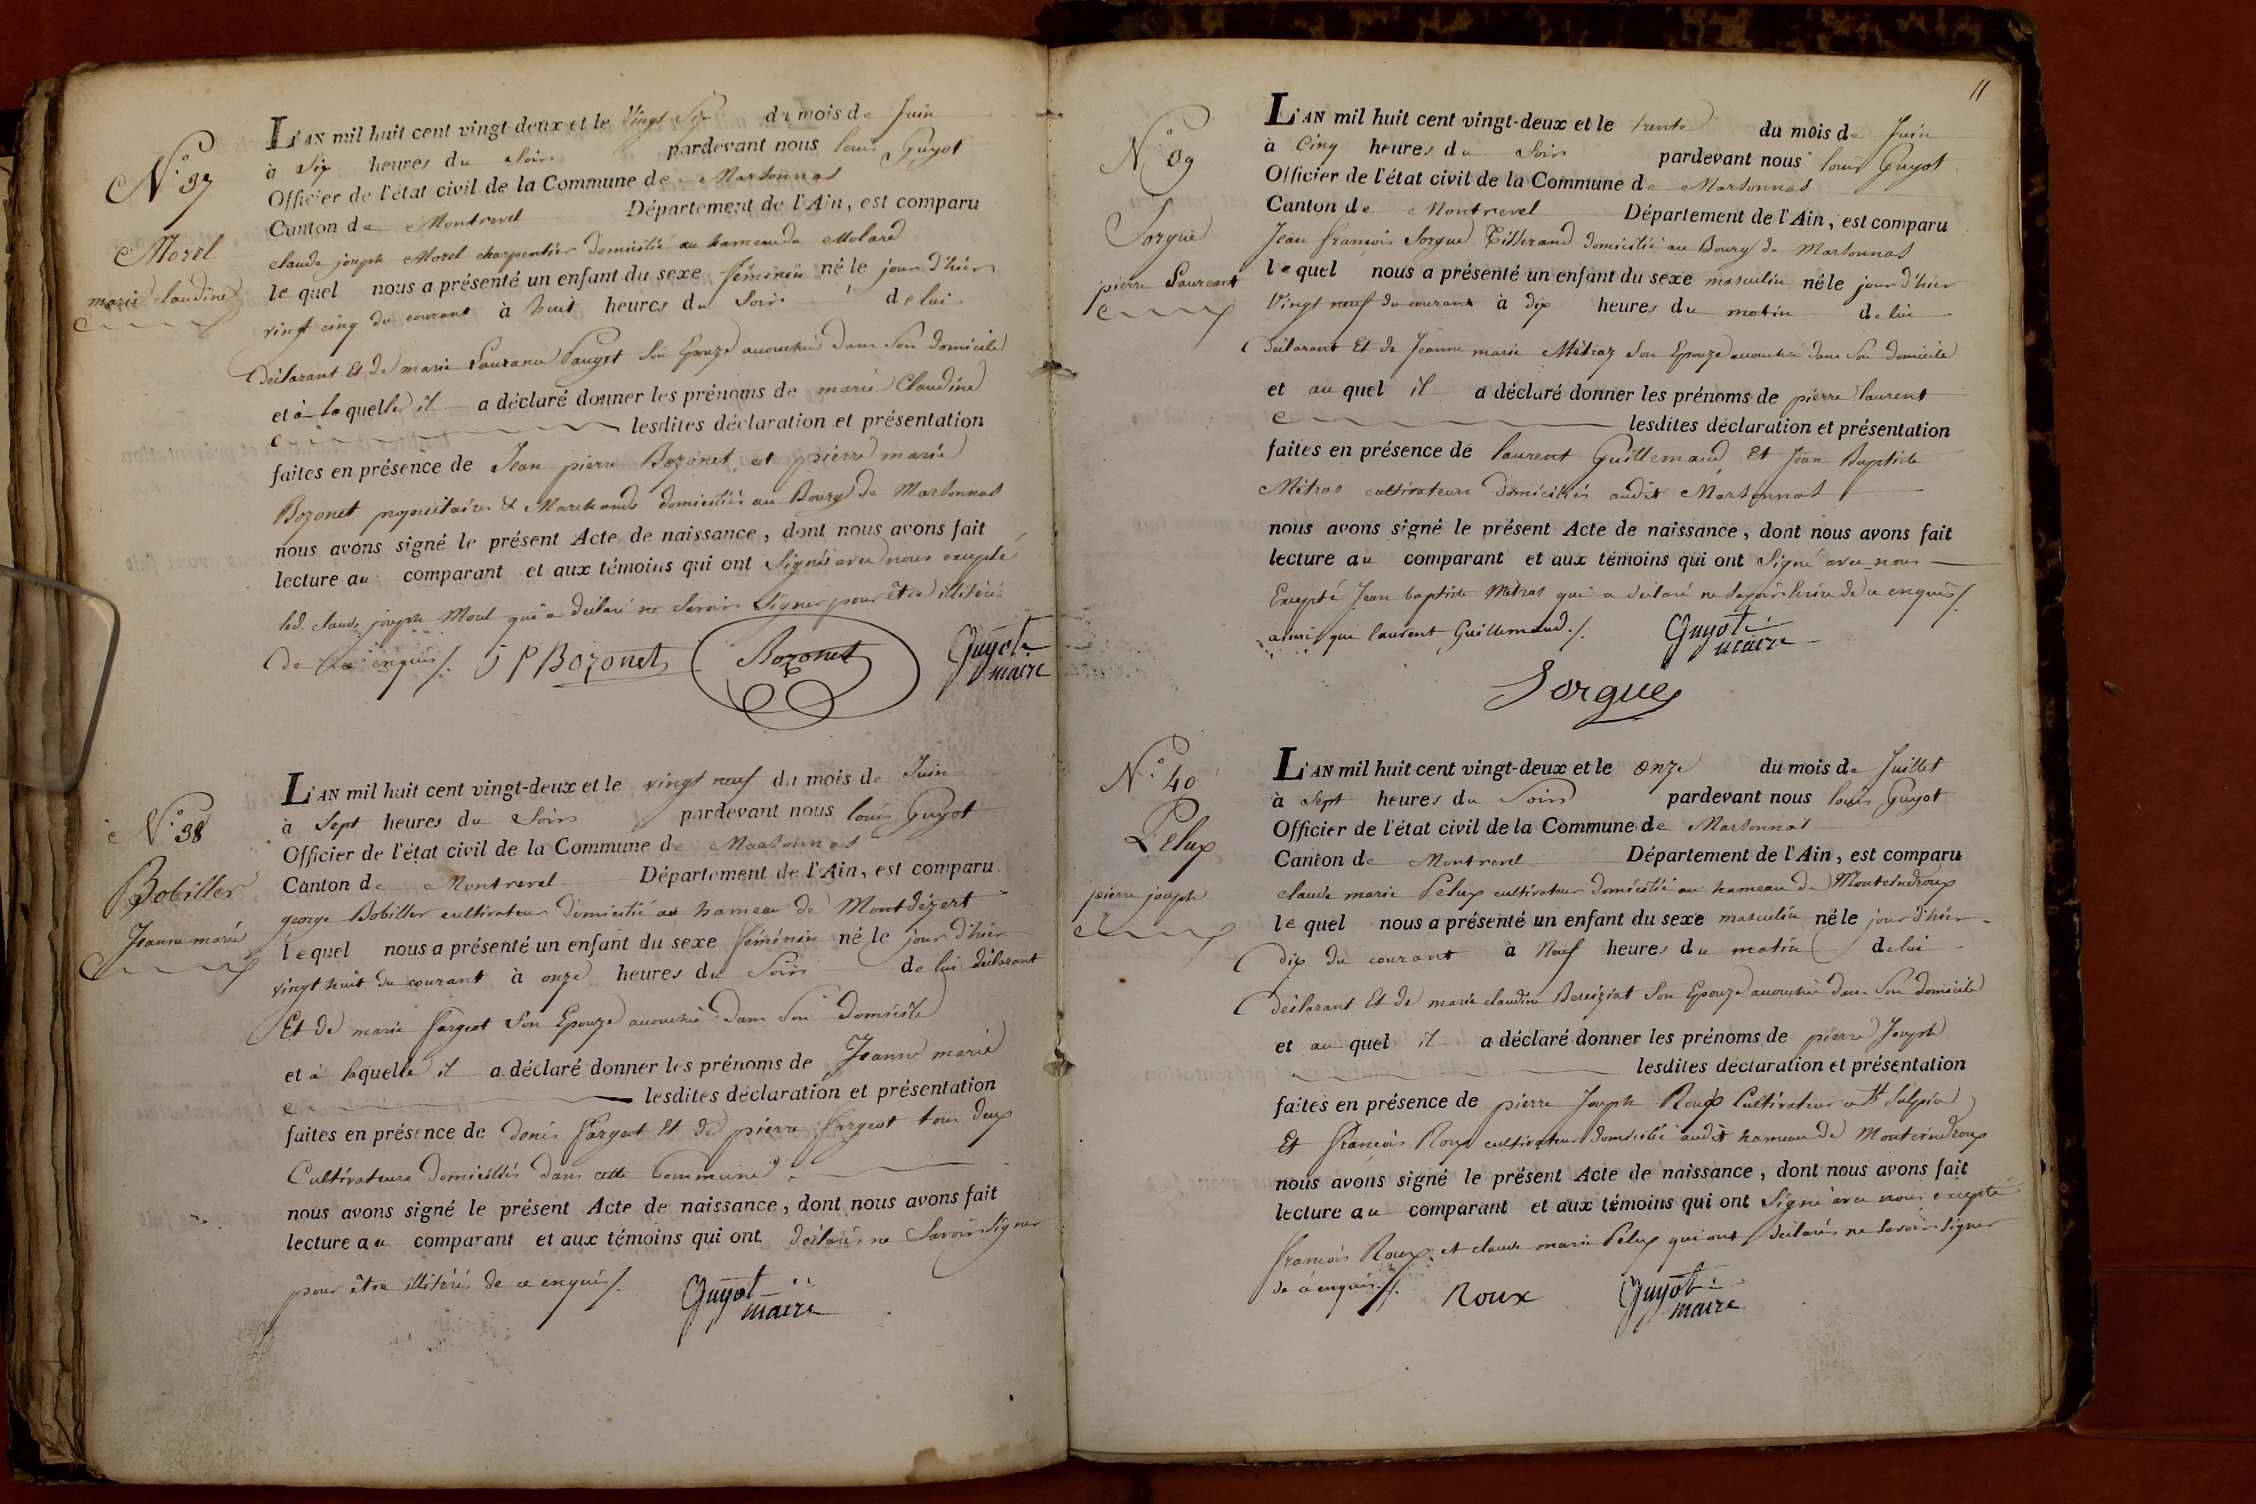 N.° 37
Morel
marie claudine
L'AN mil huit cent vingt-deux et le Vingt Six du mois de Juin
à Six heures du Soir pardevant nous louis Guyot
Officier de l'état civil de la Commune de Marsonnas
Canton de Montrevel Département de l'Ain, est comparu
claude joseph Morel charpentier domicilié au hameau de Molard
le quel nous a présenté un enfant du sexe féminin né le jour d'hier
vingt cinq du courant à huit heures du Soir de lui
déclarant Et de marie Lauranc Pauget Son Epouze accouchée dans Son domicile
et à la quelle il a déclaré donner les prénoms de marie Claudine
lesdites déclaration et présentation
faites en présence de Jean pierre Bozonet et pierre marie
Bozonet propriétaires & Marchands domiciliés au Bourg de Marsonnas
nous avons signé le présent Acte de naissance, dont nous avons fait
lecture au comparant et aux témoins qui ont Signés avec nous excepté
led. claude joseph Morel qui a déclaré ne Savoir Signer pour être illitéré
de ce enquis /. J P Bozonet Bozonet Guyot
maire
N.° 38
Bobiller
Jeanne marie
L'AN mil huit cent vingt-deux et le vingt neuf du mois de Juin
à Sept heures du Soir pardevant nous louis Guyot
Officier de l'état civil de la Commune de Marsonnas
Canton de Montrevel Département de l'Ain, est comparu
george Bobiller cultivateur domicilié au hameau de Montdézert
lequel nous a présenté un enfant du sexe féminin né le jour d'hier
vingt huit du courant à onze heures du Soir de lui déclarant
Et de marie fargeot Son Epouze accouchée dans Son domicile
et à laquelle il a déclaré donner les prénoms de Jeanne marie
lesdites déclaration et présentation
faites en présence de denis fargeot Et de pierre fargeot tous deux
Cultivateurs domiciliés dans cette Commune
nous avons signé le présent Acte de naissance, dont nous avons fait
lecture au comparant et aux témoins qui ont déclarés ne Savoir Signer
pour être illitérés de ce enquis /. Guyot
maire
11
N.° 39
Sorgue
pierre Laureant
L'AN mil huit cent vingt-deux et le trente du mois de Juin
à Cinq heures du Soir pardevant nous louis Guyot
Officier de l'état civil de la Commune de Marsonnas
Canton de Montrevel Département de l'Ain, est comparu
Jean françois Sorgue Tisserand domicilié au Bourg de Marsonnas
lequel nous a présenté un enfant du sexe masculin né le jour d'hier
Vingt neuf du courant à dix heures du matin de lui
déclarant Et de Jeanne marie Métraz Son Epouze accouchée dans Son domicile
et au quel il a déclaré donner les prénoms de pierre laurent
lesdites déclaration et présentation
faites en présence de laurent Guillemaud Et Jean Baptiste
Métras cultivateurs domiciliés audit Marsonnas
nous avons signé le présent Acte de naissance, dont nous avons fait
lecture au comparant et aux témoins qui ont Signé avec nous
Excepté Jean baptiste Métras qui a déclaré ne Savoir Ecrire de ce enquis /.
ainsi que laurent Guillemaud ./. Guyot
maire
Sorgue
N.° 40
Pelux
pierre joseph
L'AN mil huit cent vingt-deux et le onze du mois de Juillet
à Sept heures du Soir pardevant nous louis Guyot
Officier de l'état civil de la Commune de Marsonnas
Canton de Montrevel Département de l'Ain, est comparu
claude marie Pelux cultivateur domicilié au hameau de
lequel nous a présenté un enfant du sexe masculin né le jour d'hier
dix du courant à Neuf heures du matin de lui
déclarant Et de marie claudine Bereiziat Son Epouze accouchée dans Son domicile
et au quel il a déclaré donner les prénoms de pierre Joseph
lesdites déclaration et présentation
faites en présence de pierre Joseph Roux Cultivateur a St Sulpice
Et françois Roux cultivateur domicilié audit hameau de
nous avons signé le présent Acte de naissance, dont nous avons fait
lecture au comparant et aux témoins qui ont Signé avec nous excepté
françois Roux et claude marie Pelux qui ont déclarés ne Savoir Signer
de ce enquis /. Roux Guyot
maire